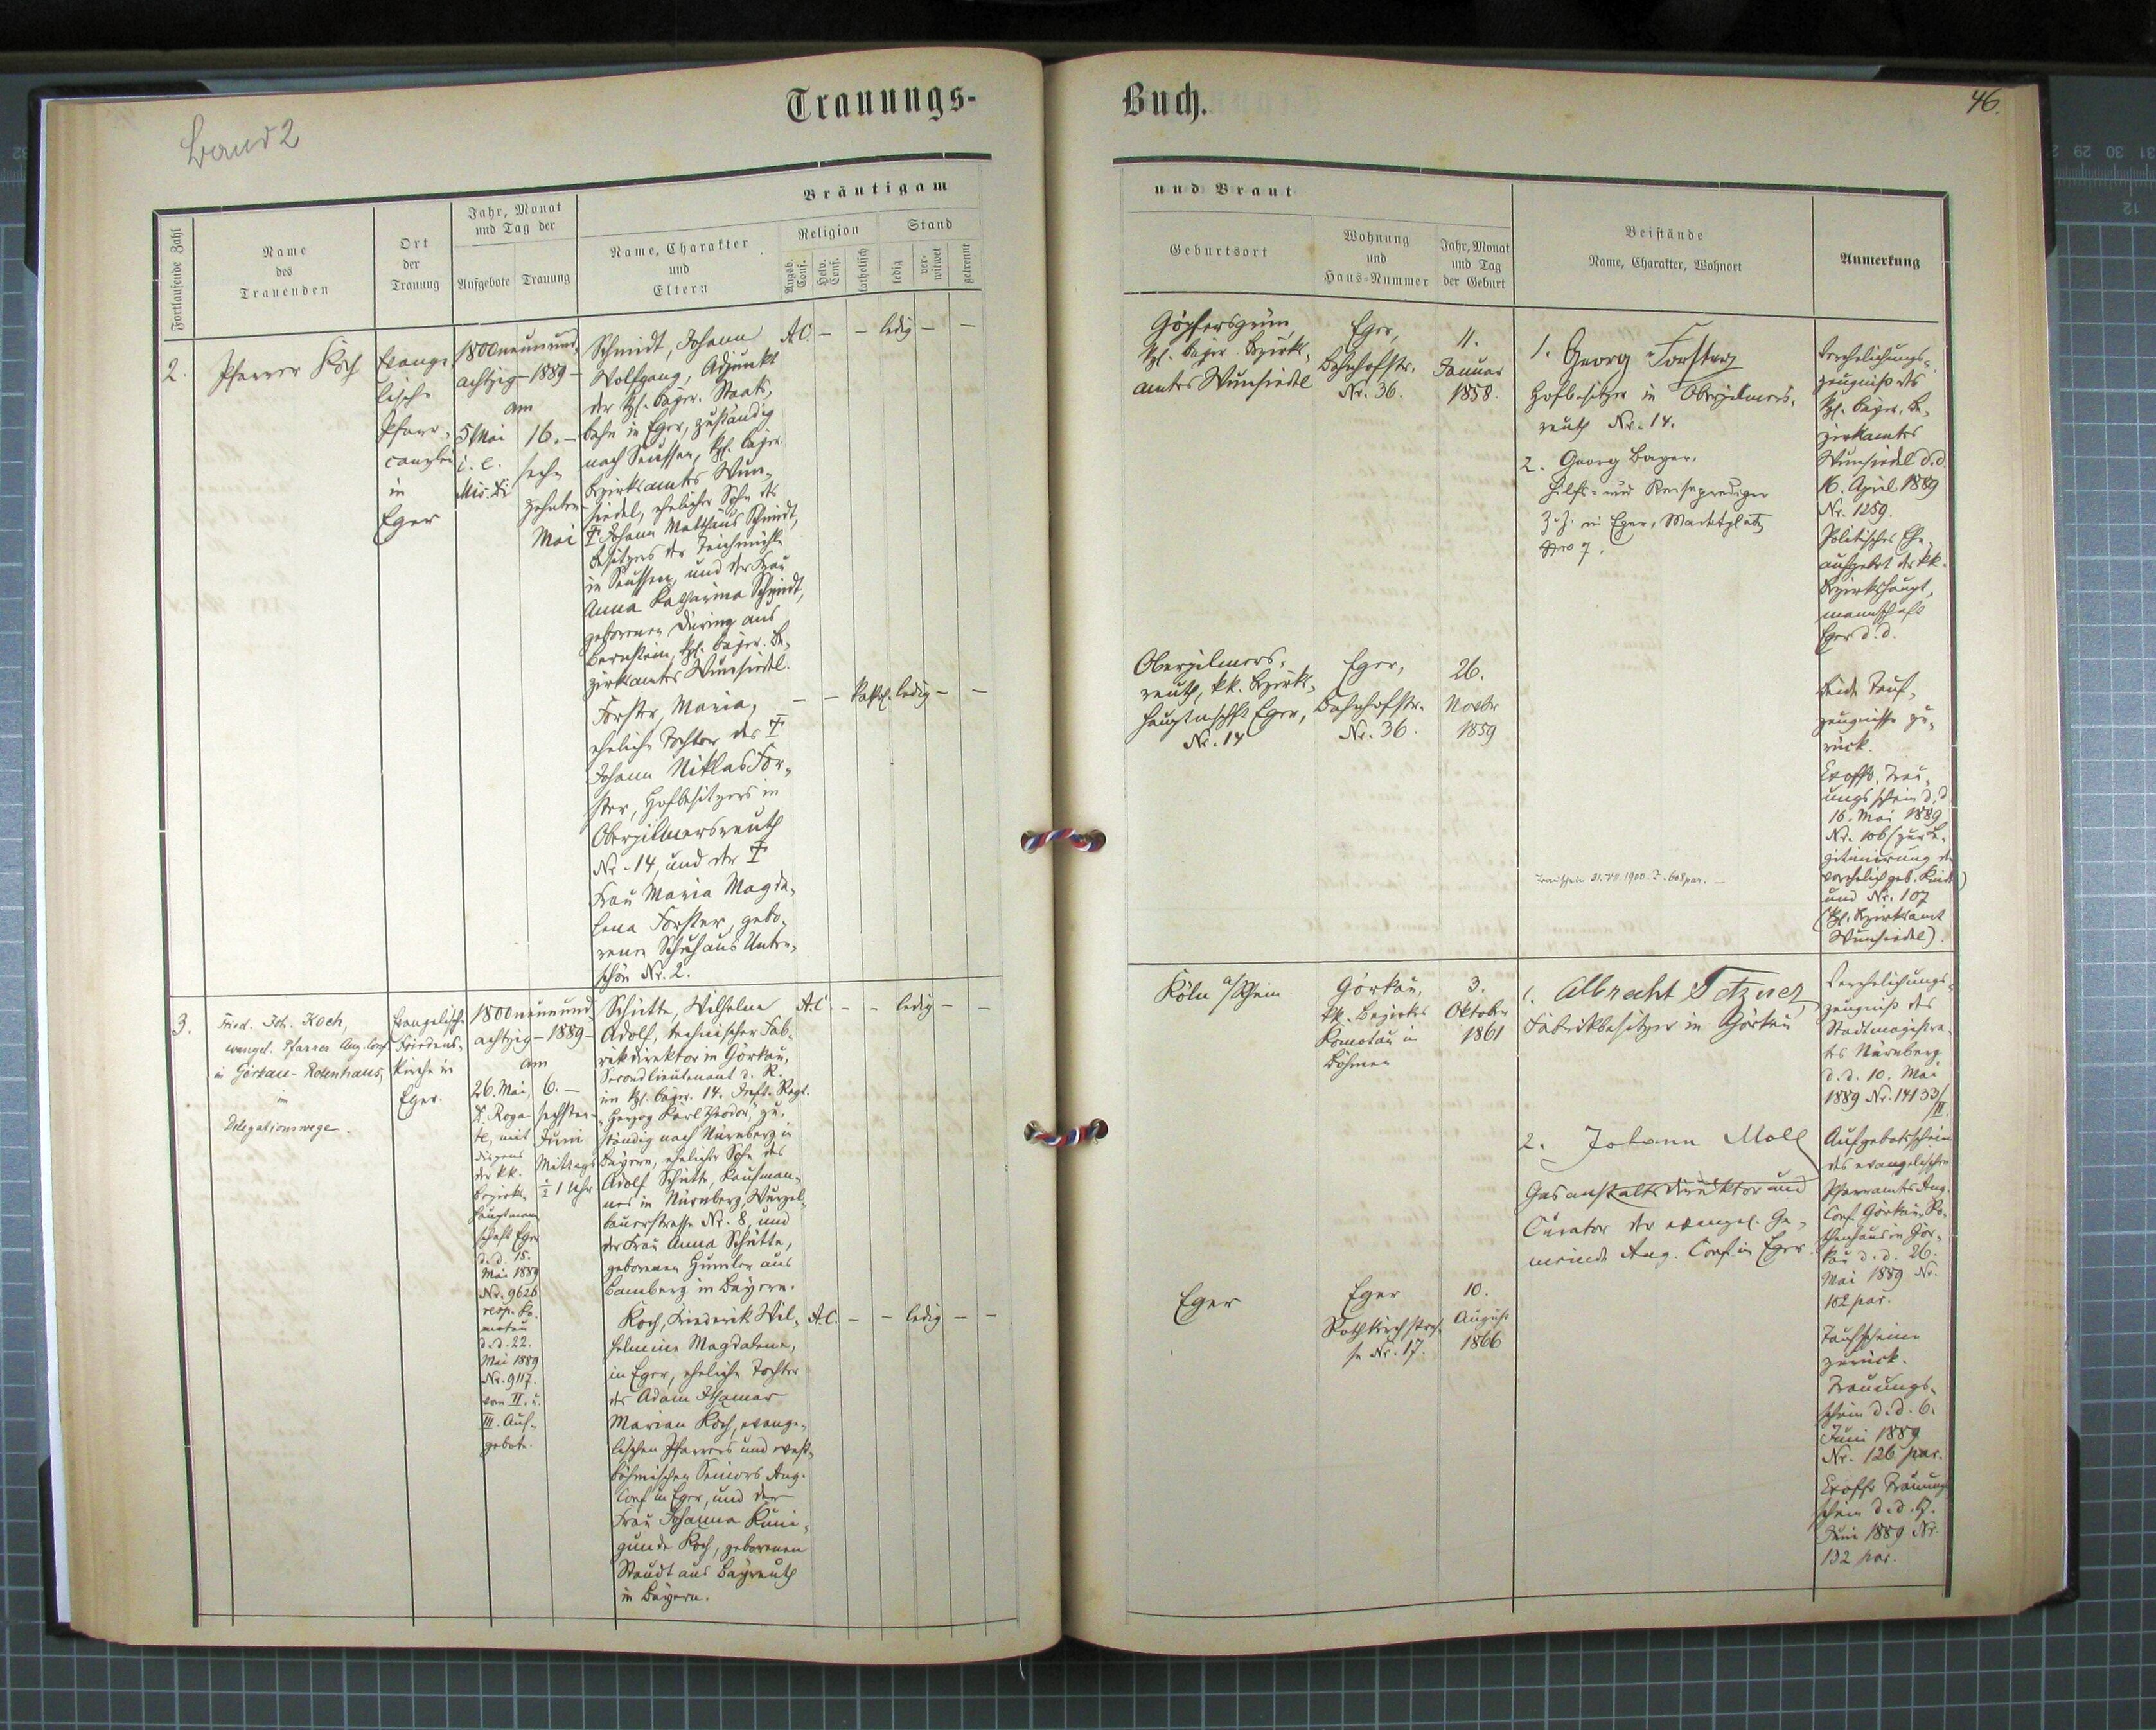 Trauungs-
Buch.
46.
Band 2
Fortlaufende Zahl
Name
des
Trauenden
Ort
der
Trauung
Jahr, Monat
und Tag der
Aufgebote
Trauung
Bräutigam
Name, Charakter
und
Eltern
Religion
Augsb. Conf.
Helv. Conf.
katholisch
Stand
ledig
ver-
witwet
getrennt
und Braut
Geburtsort
Wohnung
und
Haus-Nummer
Jahr, Monat
und Tag
der Geburt
Beistände
Name, Charakter, Wohnort
Anmerkung
2.
Pfarrer Koch
Evange
lische
Pfarr-
canzlei
in
Eger
1800neunund,
achtzig-1889-
am
5 Mai
i. e.
Mis. Di
16.-
sech
zehnten
Mai
Schmidt, Johann
Wolfgang, Adjunkt
der kgl. bayr. Staats,
bahn in Eger, zuständig
nach Seussen, kgl. bayr.
Bezirksamtes Wun-
siedel, ehelicher Sohn des
† Johann Matthäus Schmidt,
Besitzers der Teichmühle
in Seussen, und der Frau
Anna Katharina Schmidt,
geborenen Düring aus
Bernstein, kgl. bayr. Be,
zirksamtes Wunsiedel.
A.C. - - ledig - -
Göpfersgrün,
kgl. bayr. Bezirks,
amtes Wunsiedel
Eger,
Bahnhofstr.
Nr. 36.
11.
Januar
1858.
1. Georg Forster
Hofbesitzer in Oberpilmers,
reuth Nr. 14.
2. Georg Bayer,
Hilfs- und Reiseprediger
z. Z. in Eger, Marktplatz
Nro 7.
Verehelichungs-
zeugniß des
kgl. bayr. Be,
zirksamtes
Wunsiedel d.d.
16. April 1889
Nr. 1259.
Politisches Ehe,
aufgebot der kk.
Bezirkshaupt,
mannschaft
Eger d. d.
Forster, Maria,
eheliche Tochter des †
Johann Niklas For,
ster, Hofbesitzers in
Oberpilmersreuth
Nr. 14, und der †
Frau Maria Magda,
lena Forster, gebo,
renen Schuh aus Unter,
schön Nr. 2.
- - kathol. ledig - -
Oberpilmers,
reuth, kk. Bezirks,
hauptmschft Eger,
Nr. 14
Eger,
Bahnhofstr.
Nr. 36.
26.
Novbr
1859
Beide Tauf,
zeugnisse zu,
rück.
Exoffo. Trau,
ungsschein d. d.
16. Mai 1889
Nr. 106 (zur Le,
gitimirung des
vorehelich geb. Kindes)
und Nr. 107
(kgl. Bezirksamt
Wunsiedel).
Trauschein 31. VII. 1900. Z. 608 par. -
3.
Fried. Joh. Koch,
evangel. Pfarrer Aug. Conf
in Görkau-Rotenhaus,
im
Delegationswege.
Evangelische
Friedens,
kirche in
Eger.
1800neunund
achtzig-1889-
am
26. Mai,
D. Roga
te, mit
Dispens
der kk.
Bezirks,
hauptmann
schaft Eger
d. d. 18.
Mai 1889
Nr. 9626
resp. Ko,
motau
d. d. 22.
Mai 1889
Nr. 9117.
vom II. u.
III. Auf-
gebote.
6.-
sechsten
Juni
Mittags
½ 1 Uhr
Schütte, Wilhelm
Adolf, technischer Fab,
rikdirektor in Görkau,
Secondlieutenant d. R.
im kgl. bayr. 14. Inft. Regt.
"Herzog Karl Theodor," zu,
ständig nach Nürnberg in
Bayern, ehelicher Sohn des
Adolf Schütte, Kaufman,
nes in Nürnberg, Wurzel,
bauerstrasse Nr. 8, und
der Frau Anna Schütte,
geborenen Hümler aus
Bamberg in Bayern.
A.C. - - ledig - -
Köln a/Rhein
Görkau,
kk. Bezirkes
Komotau in
Böhmen
3.
Oktober
1861
1. Albrecht Tetzner
Fabrikbesitzer in Görkau
2. Johann Moll
Gasanstaltsdirektor und
Curator der evangel. Ge,
meinde Aug. Conf. in Eger.
Verehelichungs-
zeugniß des
Stadtmagistra,
tes Nürnberg
d. d. 10. Mai
1889 Nr. 14133/
II.
Aufgebotsschein
des evangelischen
Pfarramtes Aug.
Conf. Görkau, Ro,
thenhaus in Gör,
kau d. d. 26.
Mai 1889 Nr.
102 par.
Koch, Friederik Wil,
helmine Magdalena,
in Eger, eheliche Tochter
des Adam Ithamar
Marian Koch, evange,
lischen Pfarrers und west,
böhmischen Seniors Aug.
Conf. in Eger, und der
Frau Johanna Kuni,
gunde Koch, geborenen
Staudt aus Bayreuth
in Bayern.
A.C. - - ledig - -
Eger
Eger
Rothkirchstras,
se Nr. 17.
10.
August
1866
Taufscheine
zurück.
Trauungs-
schein d. d. 6.
Juni 1889
Nr. 126 par.
Exoffo Trauungs
schein d. d. 17.
Juni 1889 Nr.
132 par.